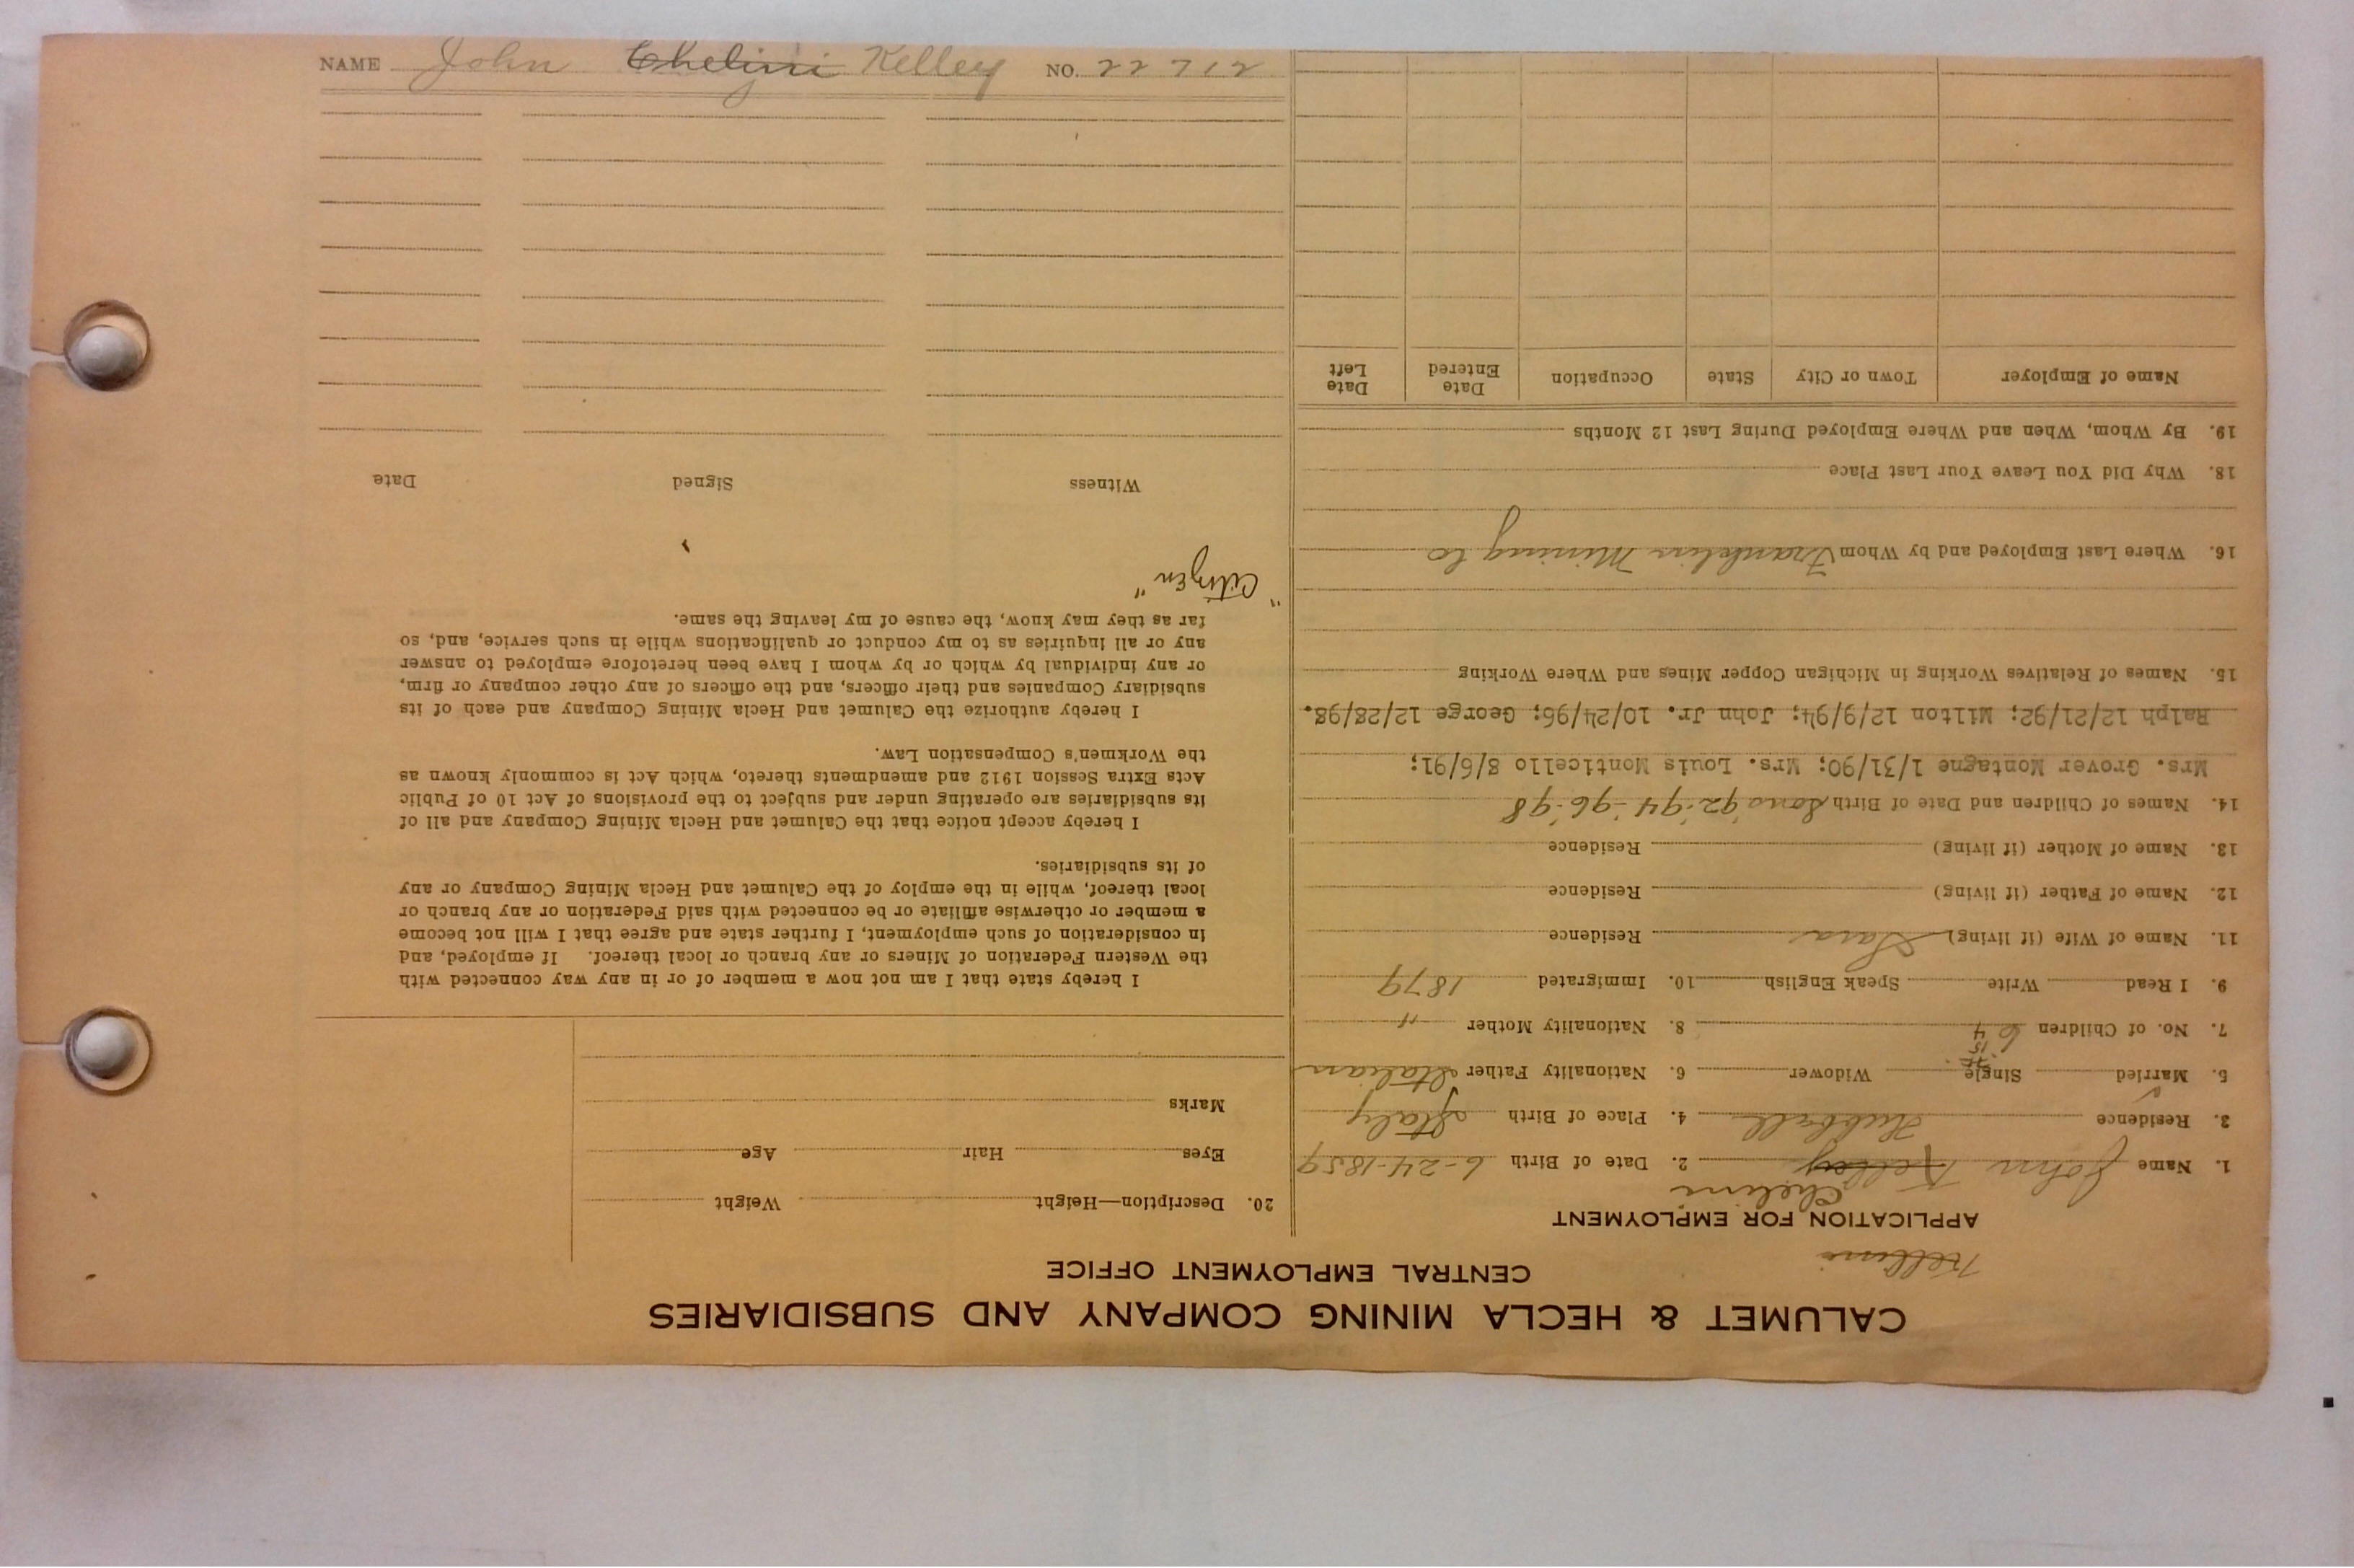 NAME John Chelini Kelley NO. 22712
CALUMET & HECLA MINING COMPANY AND SUBSIDIARIES
CENTRAL EMPLOYMENT OFFICE
Kellini
APPLICATION FOR EMPLOYMENT
Chelini
1. Name John Kelley 2. Date of Birth 6-24-1859
3. Residence Hubbell 4. Place of Birth Italy
5. Married Single Widower 6. Nationality Father Italian
7. No. of Children 6 4 8. Nationality Mother "
9. I Read Write Speak English 10. Immigrated 1879
11. Name of Wife (if living) Sara Residence
12. Name of Father (if living) Residence
13. Name of Mother (if living) Residence
14. Names of Children and Date of Birth Sons '92-'94-'96-'98
Mrs. Grover Montagne 1/31/90; Mrs. Louis Monticello 8/6/91;
Ralph 12/21/92; Milton 12/9/94; John Jr. 10/24/96; George 12/28/98.
15. Names of Relatives Working in Michigan Copper Mines and Where Working
16. Where Last Employed and by Whom Franklin Mining Co
18. Why Did You Leave Your Last Place
19. By Whom, When and Where Employed During Last 12 Months
Name of Employer Town or City State Occupation Date Entered Date Left
20. Description—Height Weight
Eyes Hair Age
Marks
I hereby state that I am not now a member of or in any way connected with
the Western Federation of Miners or any branch or local thereof. If employed, and
in consideration of such employment, I further state and agree that I will not become
a member or otherwise affiliate or be connected with said Federation or any branch or
local thereof, while in the employ of the Calumet and Hecla Mining Company or any
of its subsidiaries.
I hereby accept notice that the Calumet and Hecla Mining Company and all of
its subsidiaries are operating under and subject to the provisions of Act 10 of Public
Acts Extra Session 1912 and amendments thereto, which Act is commonly known as
the Workmen's Compensation Law.
I hereby authorize the Calumet and Hecla Mining Company and each of its
subsidiary Companies and their officers, and the officers of any other company or firm,
or any individual by which or by whom I have been heretofore employed to answer
any or all inquiries as to my conduct or qualifications while in such service, and, so
far as they may know, the cause of my leaving the same.
"Citizen"
Witness Signed Date